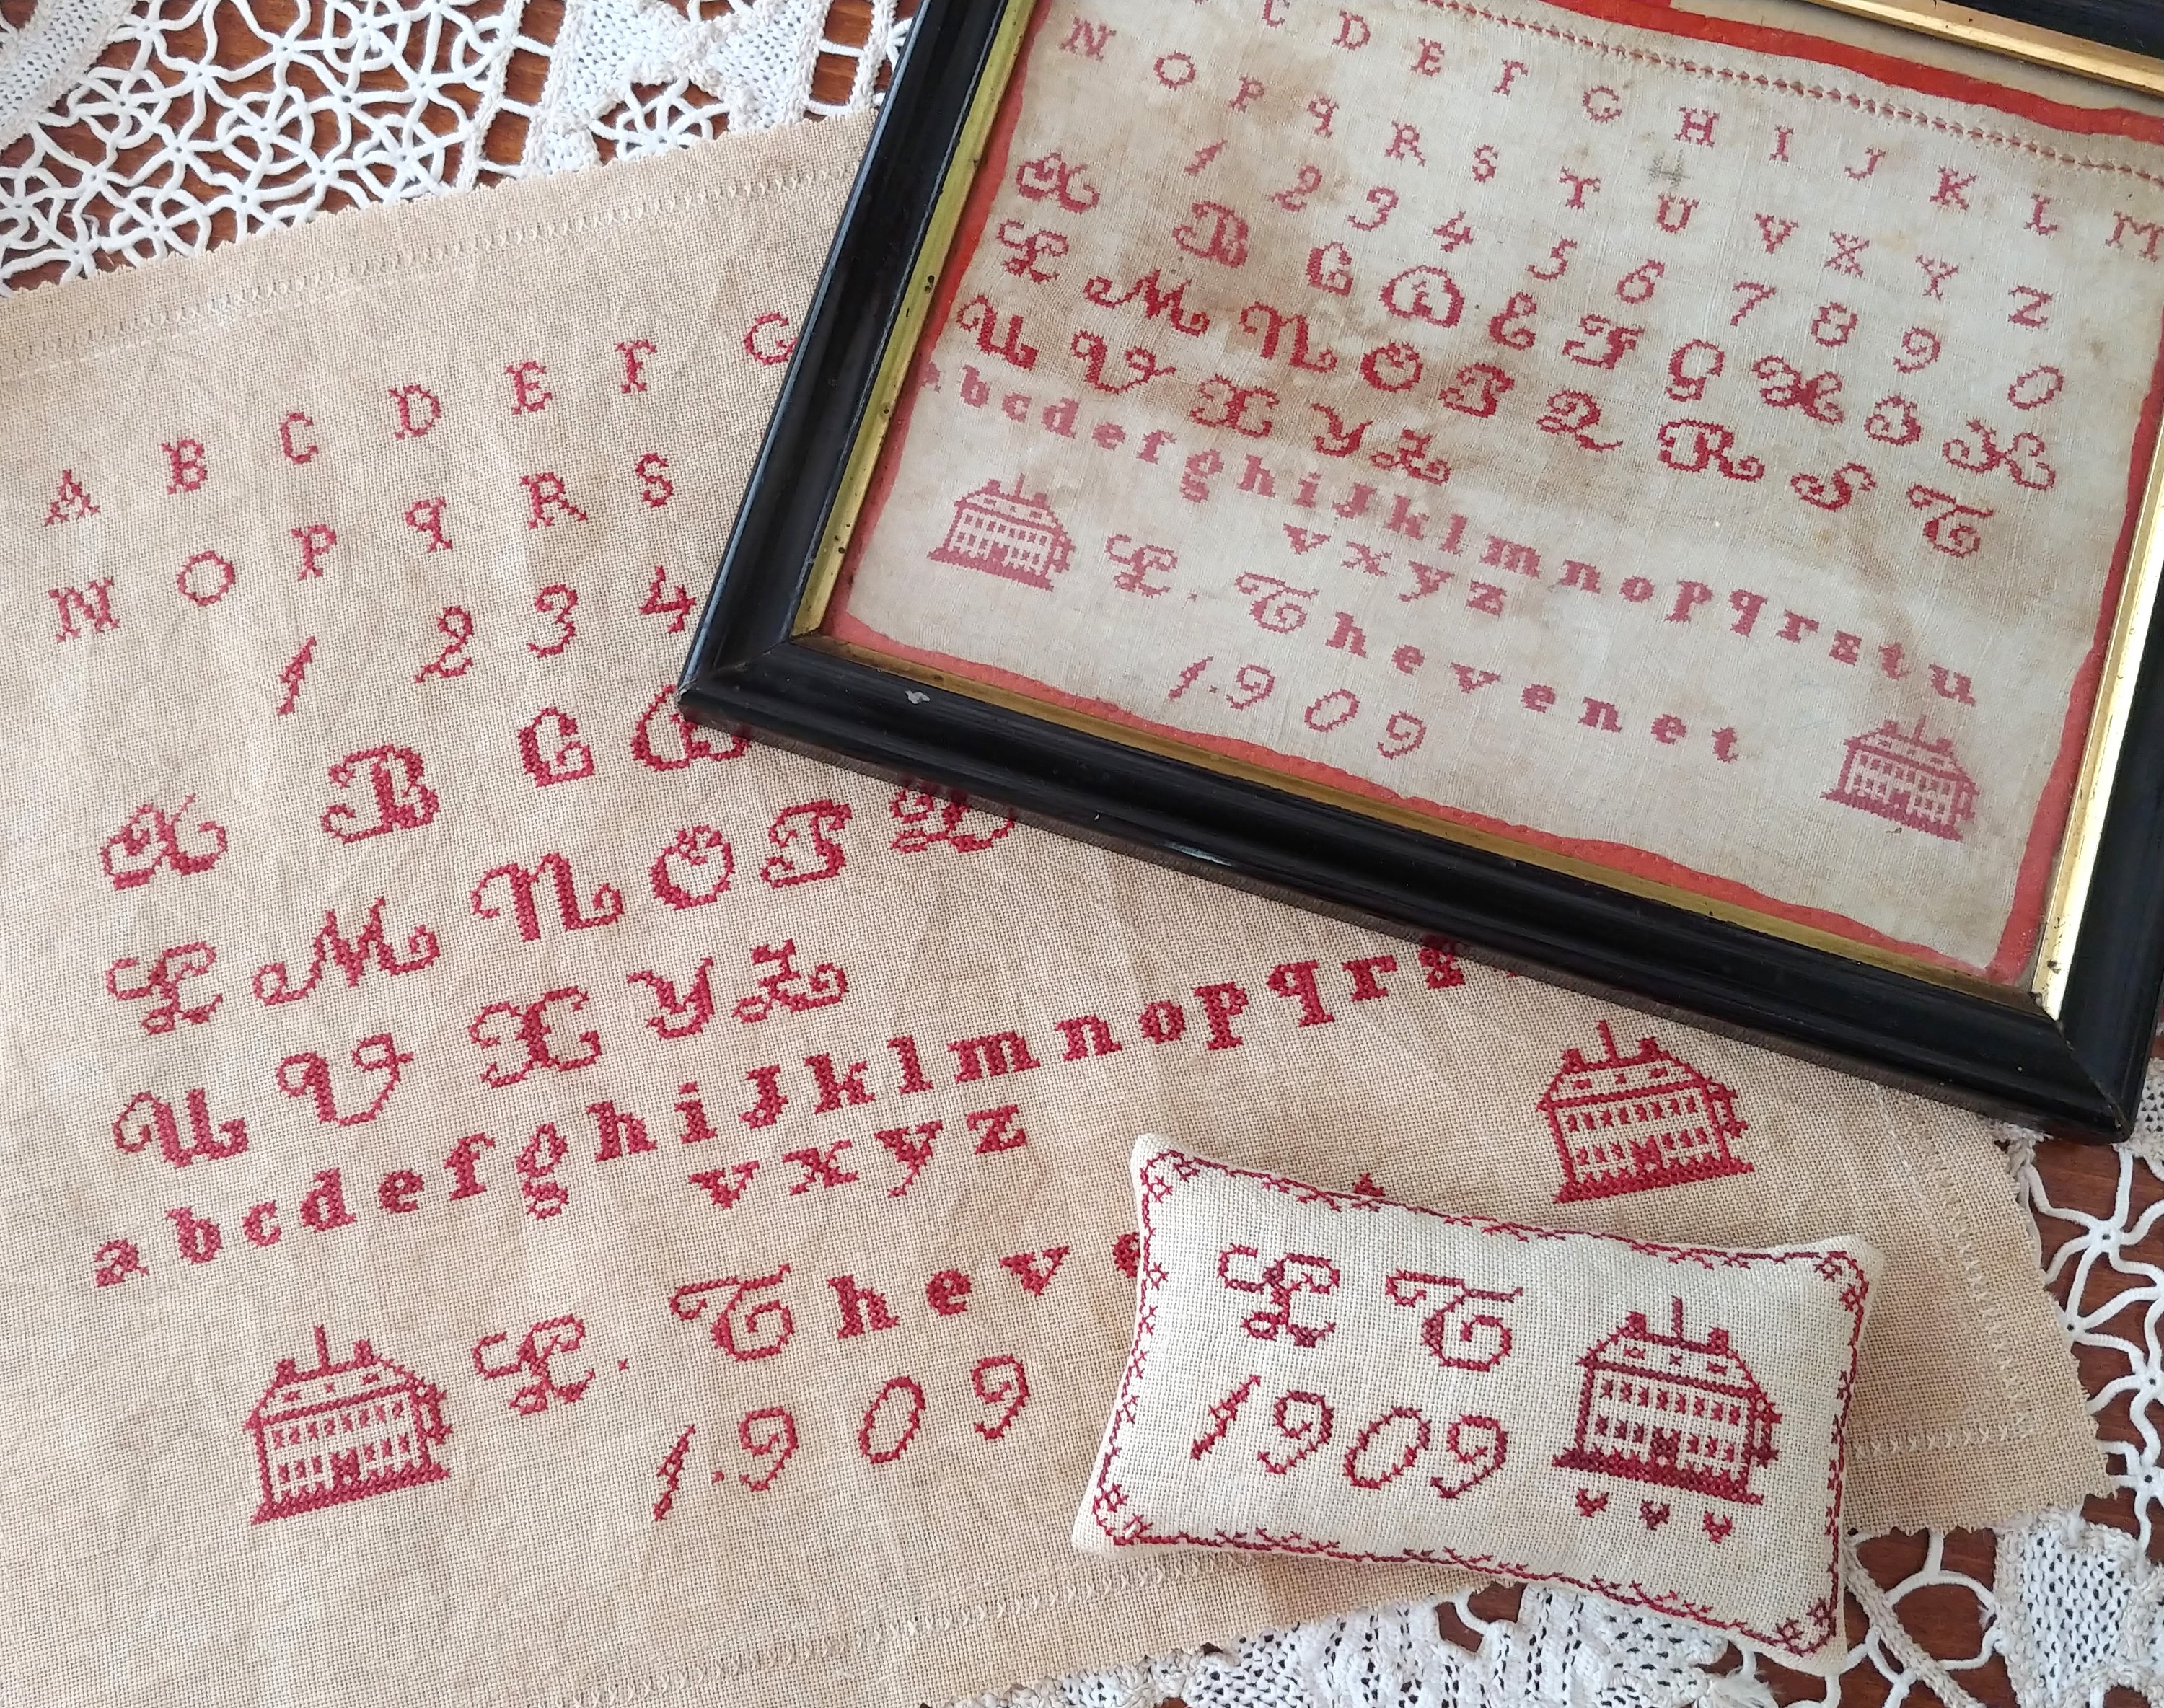 C D E F G H I J K L M
N O P q R S T U V X Y Z
1 2 3 4 5 6 7 8 9 0
A B C D E F G H I K
L M N O P Q R S T
U V X Y Z
abcdefghiJklmnopqrstu
vxyz
L. Thevenet
1.909
A B C D E F G
N O P q R S
1 2 3 4
A B C
L M N O P Q
U V X Y Z
abcdefghiJklmnopqrs
vxyz
L. Theve
1.909
L T
1909